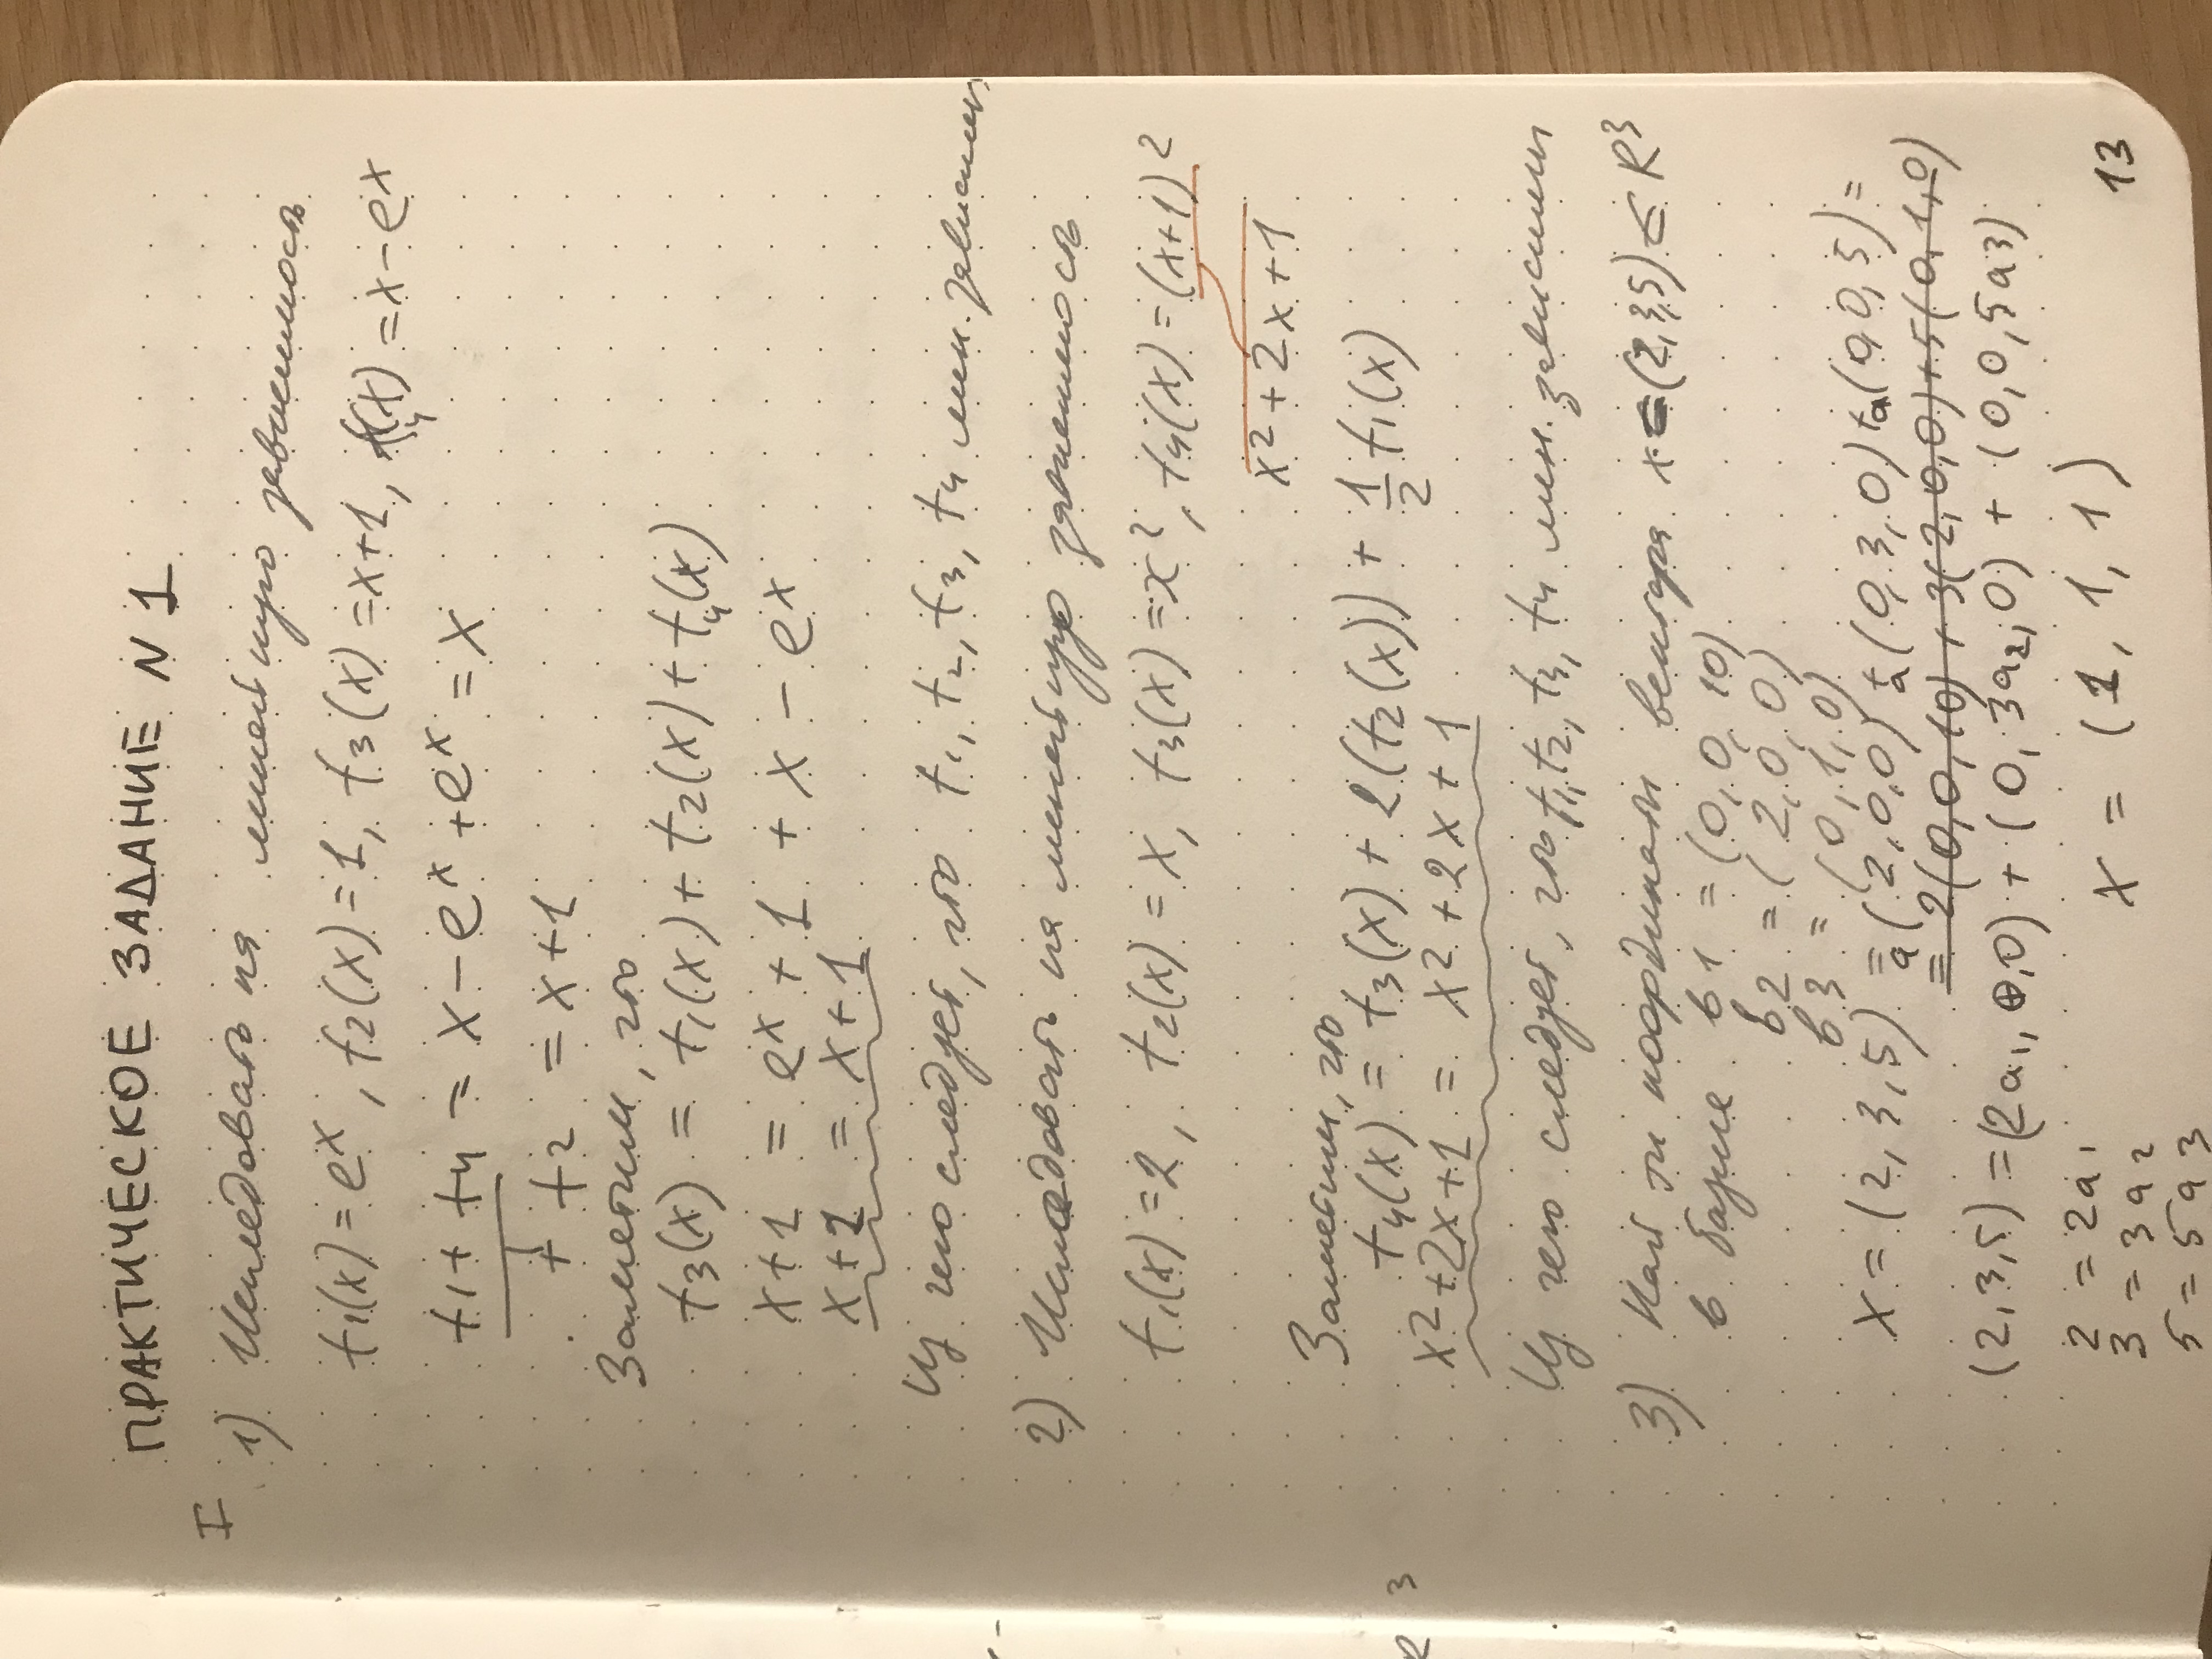 ПРАКТИЧЕСКОЕ ЗАДАНИЕ N 1
I
1) Исследовать на линейную зависимость
f1(x) = e^x, f2(x) = 1, f3(x) = x+1, f4(x) = x - e^x
f1 + f4 = x - e^x + e^x = x
+ f2 = x+1
Заметим, что
f3(x) = f1(x) + f2(x) + f4(x)
x+1 = e^x + 1 + x - e^x
x+1 = x+1
Из чего следует, что f1, f2, f3, f4 лин. зависимы
2) Исследовать на линейную зависимость
f1(x) = 2, f2(x) = x, f3(x) = x², f4(x) = (x+1)²
x² + 2x + 1
Заметим, что
f4(x) = f3(x) + 2(f2(x)) + 1/2 f1(x)
x² + 2x + 1 = x² + 2x + 1
Из чего следует, что f1, f2, f3, f4 лин. зависимы
3) Найти координаты вектора x = (2,3,5) ∈ R³
в базисе b1 = (0, 0, 10)
b2 = (2, 0, 0)
b3 = (0, 1, 0)
x = (2, 3, 5) = a(2, 0, 0) + a(0, 3, 0) + a(0, 0, 5) =
= 2(0, 0, 10) + 3(2, 0, 0) + 5(0, 1, 0)
(2, 3, 5) = (2a1, 0, 0) + (0, 3a2, 0) + (0, 0, 5a3)
2 = 2a1
3 = 3a2
5 = 5a3
x = (1, 1, 1)
13